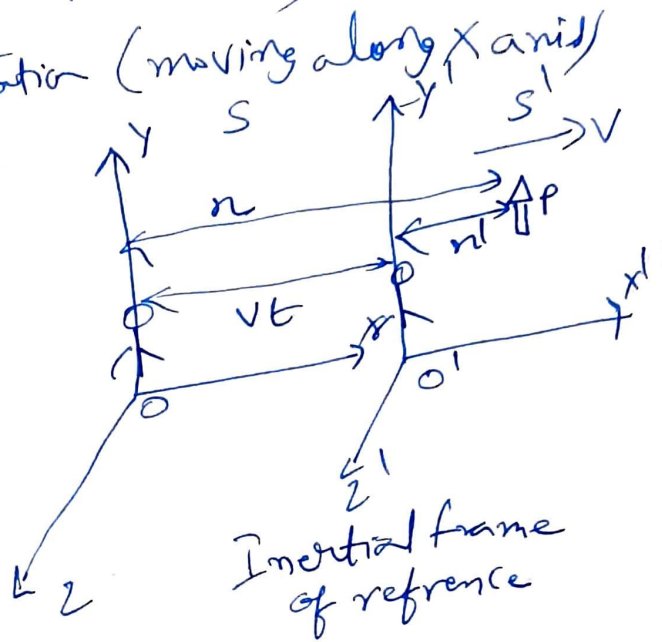 ation (moving along X axis)
Y S Y' S' → V
x P
x'
vt
x x'
O O'
Z'
Z
Inertial frame
of refrence